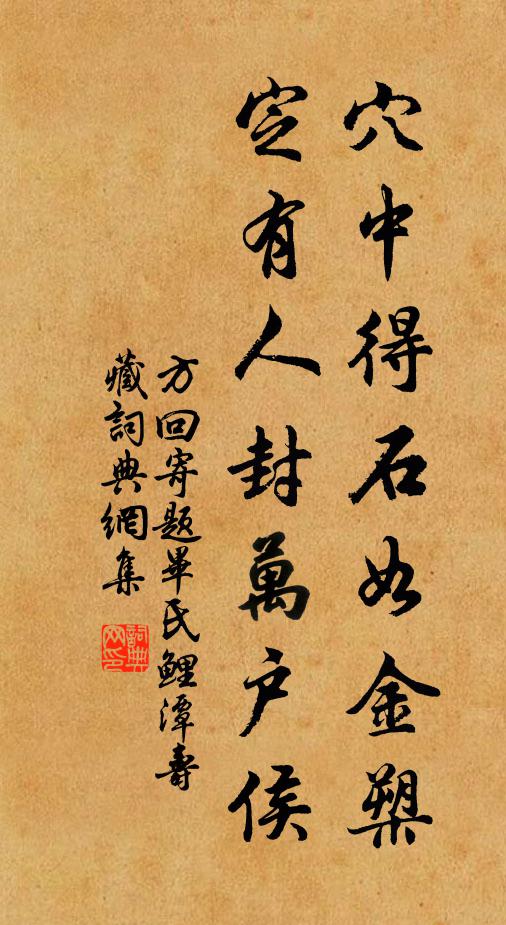 穴中得石如金槊
定有人封萬戶侯
方回寄題畢氏鯉潭壽
藏詞典網集
詞典
网印